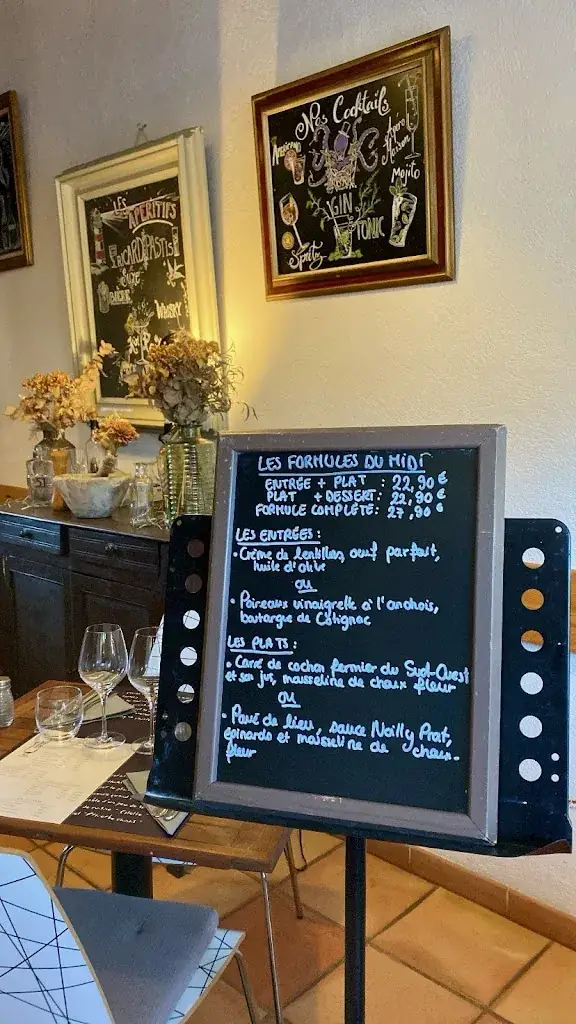 Nos Cocktails
Americano
Apero
Maison
Mojito
GIN
TONIC
Spritz
LES
APERITIFS
RICARD PASTIS
BIERE
WHISKY
LES FORMULES DU MIDI
ENTRÉE + PLAT : 22,90 €
PLAT + DESSERT : 22,90 €
FORMULE COMPLÈTE : 27,90 €
LES ENTRÉES :
• Crème de lentilles, œuf parfait,
huile d'olive
OU
• Poireaux vinaigrette à l'anchois,
boutargue de Cotignac
LES PLATS :
• Carré de cochon fermier du Sud-Ouest
et son jus, mousseline de choux fleur
OU
• Pavé de lieu, sauce Noilly Prat,
épinards et mousseline de choux-
fleur